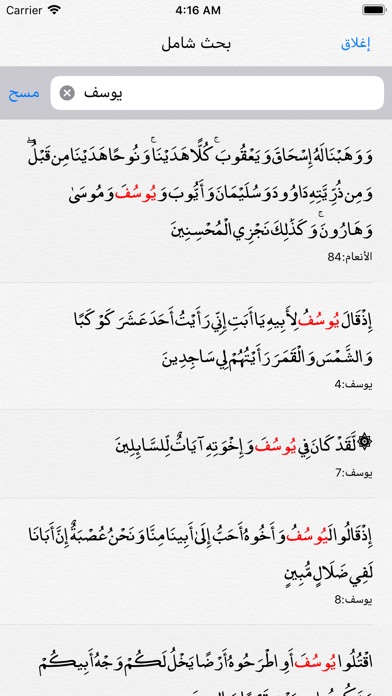 Carrier 4:16 AM
بحث شامل إغلاق
يوسف مسح
وَوَهَبْنَا لَهُ إِسْحَاقَ وَيَعْقُوبَ ۚ كُلًّا هَدَيْنَا ۚ وَنُوحًا هَدَيْنَا مِن قَبْلُ ۖ
وَمِن ذُرِّيَّتِهِ دَاوُودَ وَسُلَيْمَانَ وَأَيُّوبَ وَيُوسُفَ وَمُوسَىٰ
وَهَارُونَ ۚ وَكَذَٰلِكَ نَجْزِي الْمُحْسِنِينَ
الأنعام:84
إِذْ قَالَ يُوسُفُ لِأَبِيهِ يَا أَبَتِ إِنِّي رَأَيْتُ أَحَدَ عَشَرَ كَوْكَبًا
وَالشَّمْسَ وَالْقَمَرَ رَأَيْتُهُمْ لِي سَاجِدِينَ
يوسف:4
۞ لَّقَدْ كَانَ فِي يُوسُفَ وَإِخْوَتِهِ آيَاتٌ لِّلسَّائِلِينَ
يوسف:7
إِذْ قَالُوا لَيُوسُفُ وَأَخُوهُ أَحَبُّ إِلَىٰ أَبِينَا مِنَّا وَنَحْنُ عُصْبَةٌ إِنَّ أَبَانَا
لَفِي ضَلَالٍ مُّبِينٍ
يوسف:8
اقْتُلُوا يُوسُفَ أَوِ اطْرَحُوهُ أَرْضًا يَخْلُ لَكُمْ وَجْهُ أَبِيكُمْ